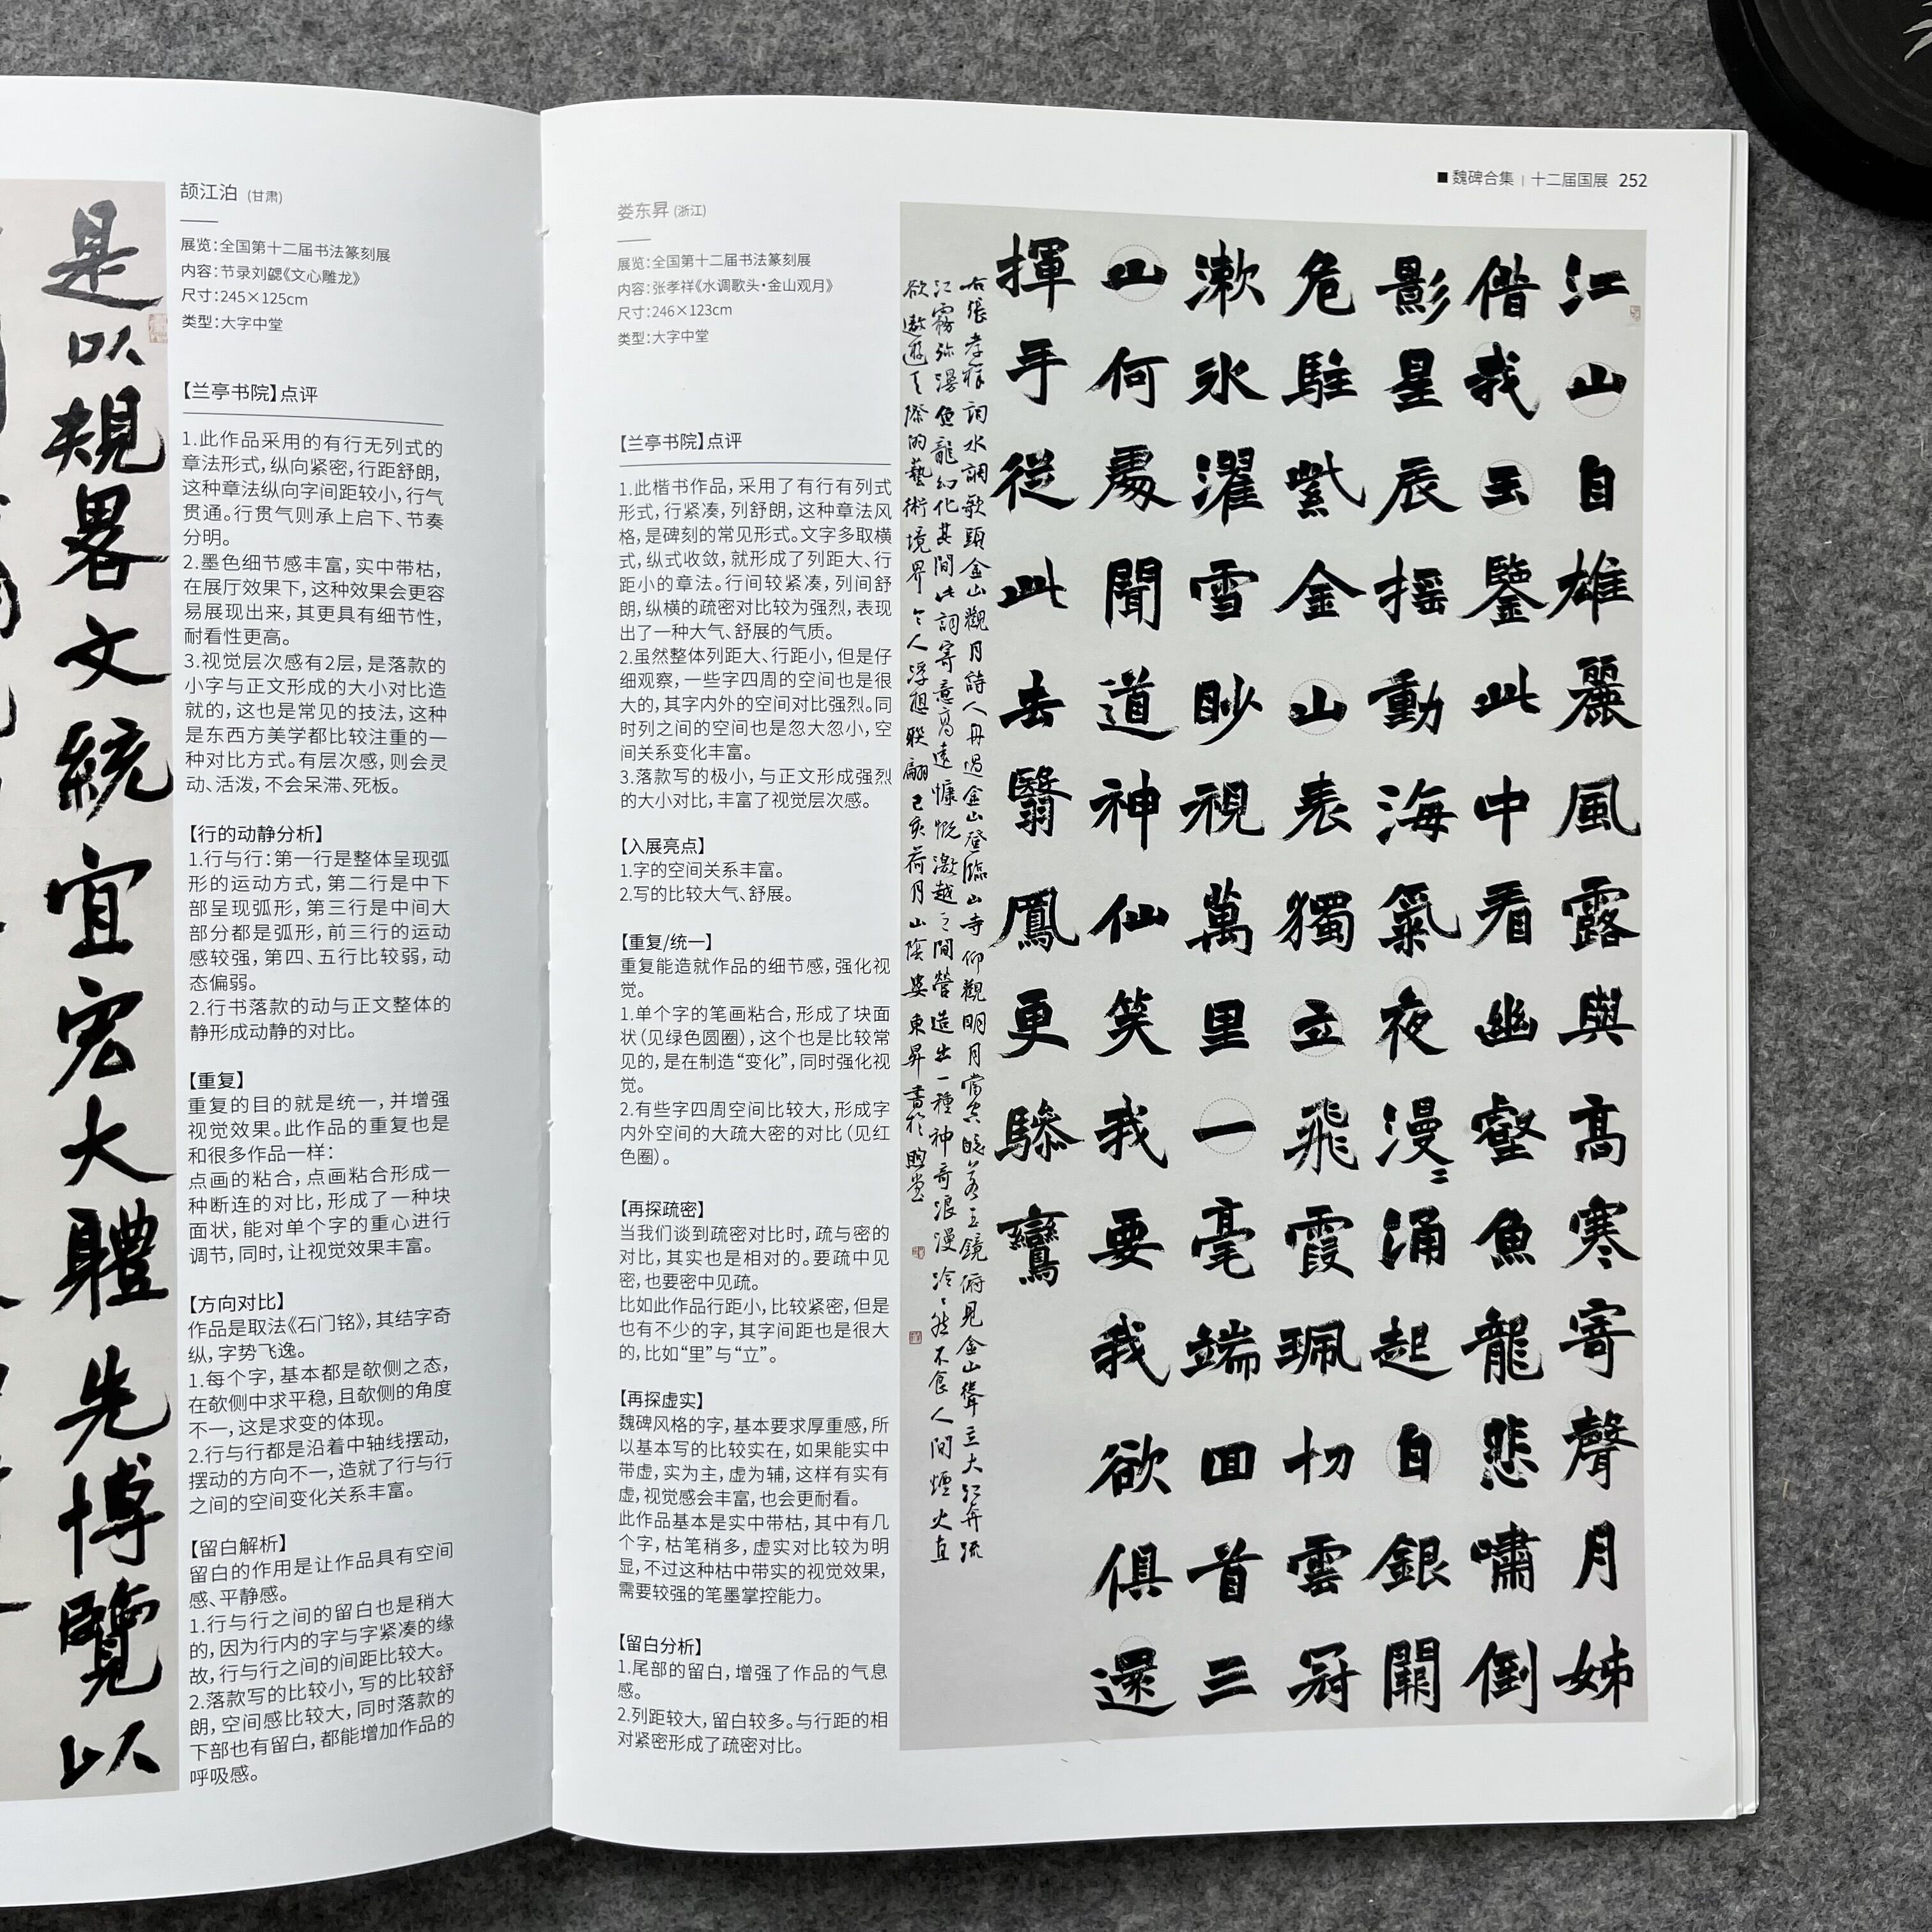 是
以
規
畧
文
統
宜
宏
大
體
先
博
覽
以
颉江泊 (甘肃)
展览:全国第十二届书法篆刻展
内容:节录刘勰《文心雕龙》
尺寸:245×125cm
类型:大字中堂
【兰亭书院】点评
1.此作品采用的有行无列式的
章法形式,纵向紧密,行距舒朗,
这种章法纵向字间距较小,行气
贯通。行贯气则承上启下、节奏
分明。
2.墨色细节感丰富,实中带枯,
在展厅效果下,这种效果会更容
易展现出来,其更具有细节性,
耐看性更高。
3.视觉层次感有2层,是落款的
小字与正文形成的大小对比造
就的,这也是常见的技法,这种
是东西方美学都比较注重的一
种对比方式。有层次感,则会灵
动、活泼,不会呆滞、死板。
【行的动静分析】
1.行与行:第一行是整体呈现弧
形的运动方式,第二行是中下
部呈现弧形,第三行是中间大
部分都是弧形,前三行的运动
感较强,第四、五行比较弱,动
态偏弱。
2.行书落款的动与正文整体的
静形成动静的对比。
【重复】
重复的目的就是统一,并增强
视觉效果。此作品的重复也是
和很多作品一样:
点画的粘合,点画粘合形成一
种断连的对比,形成了一种块
面状,能对单个字的重心进行
调节,同时,让视觉效果丰富。
【方向对比】
作品是取法《石门铭》,其结字奇
纵,字势飞逸。
1.每个字,基本都是欹侧之态,
在欹侧中求平稳,且欹侧的角度
不一,这是求变的体现。
2.行与行都是沿着中轴线摆动,
摆动的方向不一,造就了行与行
之间的空间变化关系丰富。
【留白解析】
留白的作用是让作品具有空间
感、平静感。
1.行与行之间的留白也是稍大
的,因为行内的字与字紧凑的缘
故,行与行之间的间距比较大。
2.落款写的比较小,写的比较舒
朗,空间感比较大,同时落款的
下部也有留白,都能增加作品的
呼吸感。
■魏碑合集 | 十二届国展 252
娄东昇 (浙江)
展览:全国第十二届书法篆刻展
内容:张孝祥《水调歌头·金山观月》
尺寸:246×123cm
类型:大字中堂
【兰亭书院】点评
1.此楷书作品,采用了有行有列式
形式,行紧凑,列舒朗,这种章法风
格,是碑刻的常见形式。文字多取横
式,纵式收敛,就形成了列距大、行
距小的章法。行间较紧凑,列间舒
朗,纵横的疏密对比较为强烈,表现
出了一种大气、舒展的气质。
2.虽然整体列距大、行距小,但是仔
细观察,一些字四周的空间也是很
大的,其字内外的空间对比强烈。同
时列之间的空间也是忽大忽小,空
间关系变化丰富。
3.落款写的极小,与正文形成强烈
的大小对比,丰富了视觉层次感。
【入展亮点】
1.字的空间关系丰富。
2.写的比较大气、舒展。
【重复/统一】
重复能造就作品的细节感,强化视
觉。
1.单个字的笔画粘合,形成了块面
状(见绿色圆圈),这个也是比较常
见的,是在制造“变化”,同时强化视
觉。
2.有些字四周空间比较大,形成字
内外空间的大疏大密的对比(见红
色圈)。
【再探疏密】
当我们谈到疏密对比时,疏与密的
对比,其实也是相对的。要疏中见
密,也要密中见疏。
比如此作品行距小,比较紧密,但是
也有不少的字,其字间距也是很大
的,比如“里”与“立”。
【再探虚实】
魏碑风格的字,基本要求厚重感,所
以基本写的比较实在,如果能实中
带虚,实为主,虚为辅,这样有实有
虚,视觉感会丰富,也会更耐看。
此作品基本是实中带枯,其中有几
个字,枯笔稍多,虚实对比较为明
显,不过这种枯中带实的视觉效果,
需要较强的笔墨掌控能力。
【留白分析】
1.尾部的留白,增强了作品的气息
感。
2.列距较大,留白较多。与行距的相
对紧密形成了疏密对比。
江山自雄麗風露與高寒寄聲月姊
借我玉鑒此中看幽壑魚龍悲嘯倒
影星辰搖動海氣夜漫〻涌起白銀闕
危駐紫金山表獨立飛霞珮切雲冠
漱冰濯雪眇視萬里一毫端回首三
山何處聞道神仙笑我要我欲俱還
揮手從此去翳鳳更驂鸞
右張孝祥詞水調歌頭金山觀月詩人再過金山登臨山寺仰觀明月當空皎若玉鏡俯見金山聳立大江奔流
江霧弥漫魚龍幻化其間此詞寄意高遠慷慨激越之間營造出一種神奇浪漫冷〻然不食人間煙火直
欲遨遊天際的藝術境界令人浮想聯翩己亥荷月山陰婁東昇書於